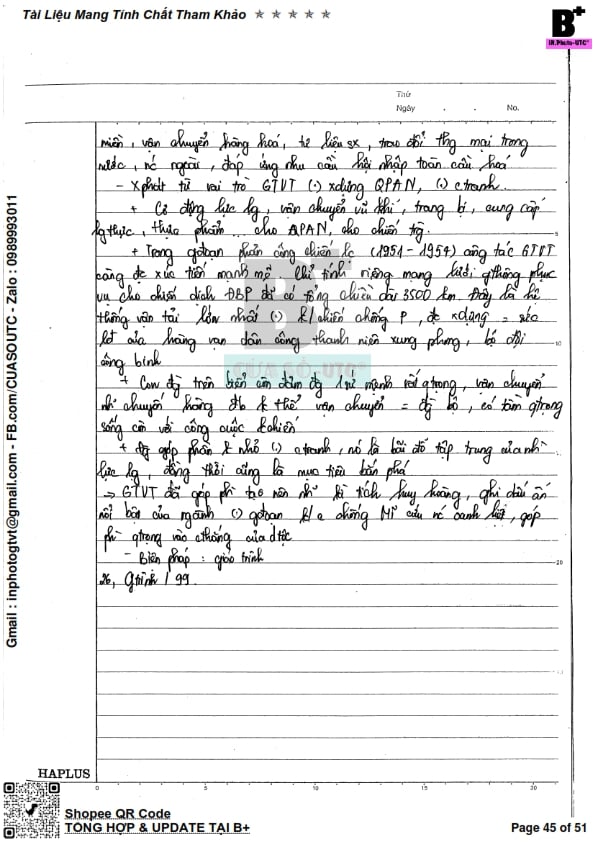 Tài Liệu Mang Tính Chất Tham Khảo ★ ★ ★ ★ ★
B+
IN.Photo-UTC*
Thứ
Ngày . . No.
miền, vận chuyển hàng hoá, tê liệu sx, trao đổi thg mại trong
nước, nc ngoài, đáp ứng nhu cầu hội nhập toàn cầu hoá
- Xphát từ vai trò GTVT (.) xdựng QPAN, (.) ctranh.
+ Cơ động lực lg, vận chuyển vũ khí, trang bị, cung cấp
lgthực, thực phẩm... cho APAN, cho chiến trg.
+ Trong gđoạn phản công chiến lc (1951 - 1954) công tác GTVT
càng đc xúc tiến mạnh mẽ. Chỉ tính riêng mạng lưới gthông phục
vụ cho chiến dịch ĐBP đã có tổng chiều dài 3500 km. Đây là hệ
thống vận tải lớn nhất (.) k/chiến chống P, đc xdựng = sức
lđ của hàng vạn dân công thanh niên xung phong, bộ đội
công binh
+ Con đg trên biển còn đảm đg 1 sứ mệnh rất qtrọng, vận chuyển
nh chuyến hàng đb k thể vận chuyển = đg bộ, có tầm qtrọng
sống còn với công cuộc kchiến
+ Đg góp phần k nhỏ (.) ctranh, nó là bãi đỗ tập trung của nh
lực lg, đồng thời cũng là mục tiêu bắn phá
→ GTVT đã góp ph tạo nên nh kì tích huy hoàng, ghi dấu ấn
nổi bật của ngành (.) gđoạn k/c chống Mĩ cứu nc oanh liệt, góp
ph qtrọng vào cthắng của dtộc
- Biện pháp : giáo trình
26, Gtrình / 99.
B+
CỬA SỔ-UTC*
5
10
20
HAPLUS
0 5 10 15 20
Gmail : inphotogtvt@gmail.com - FB.com/CUASOUTC - Zalo : 0989993011
Shopee QR Code
TỔNG HỢP & UPDATE TẠI B+
Page 45 of 51